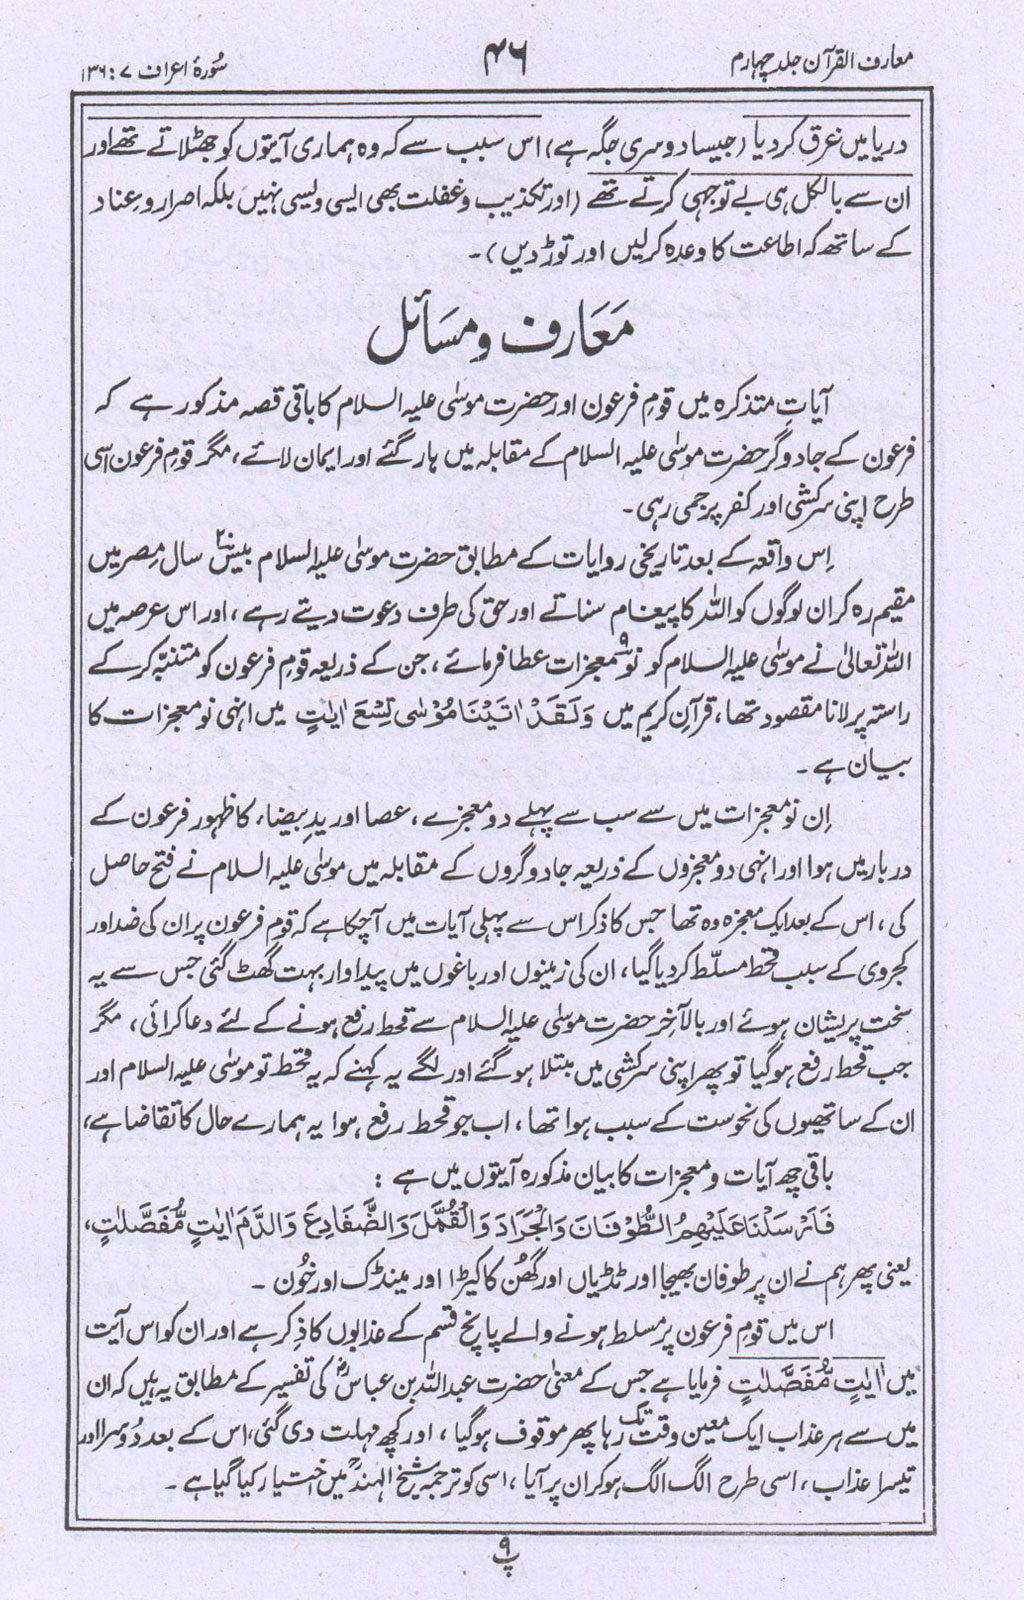 معارف القرآن جلد چہارم
۴۶
سُورۂ اعراف ۷ : ۱۳۶
دریا میں غرق کر دیا (جیسا دوسری جگہ ہے) اس سبب سے کہ وہ ہماری آیتوں کو جھٹلاتے تھے اور
ان سے بالکل ہی بے توجہی کرتے تھے (اور تکذیب و غفلت بھی ایسی ویسی نہیں بلکہ اصرار و عناد
کے ساتھ کہ اطاعت کا وعدہ کر لیں اور توڑ دیں)۔
مَعَارف و مسَائل
آیاتِ متذکرہ میں قومِ فرعون اور حضرت موسٰی علیہ السلام کا باقی قصہ مذکور ہے کہ
فرعون کے جادوگر حضرت موسٰی علیہ السلام کے مقابلہ میں ہار گئے اور ایمان لائے، مگر قومِ فرعون اسی
طرح اپنی سرکشی اور کفر پر جمی رہی۔
اِس واقعہ کے بعد تاریخی روایات کے مطابق حضرت موسٰی علیہ السلام بیس۲۰ سال مصر میں
مقیم رہ کر ان لوگوں کو اللہ کا پیغام سناتے اور حق کی طرف دعوت دیتے رہے، اور اس عرصہ میں
اللہ تعالیٰ نے موسٰی علیہ السلام کو نو۹ معجزات عطا فرمائے، جن کے ذریعہ قومِ فرعون کو متنبّہ کر کے
راستہ پر لانا مقصود تھا، قرآن کریم میں وَلَقَدْ اٰتَيْنَا مُوْسٰى تِسْعَ اٰيٰتٍ میں انہی نو معجزات کا
بیان ہے۔
اِن نو معجزات میں سے سب سے پہلے دو معجزے، عصا اور یدِ بیضاء کا ظہور فرعون کے
دربار میں ہوا اور انہی دو معجزوں کے ذریعہ جادوگروں کے مقابلہ میں موسٰی علیہ السلام نے فتح حاصل
کی، اس کے بعد ایک معجزہ وہ تھا جس کا ذکر اس سے پہلی آیات میں آچکا ہے کہ قومِ فرعون پر ان کی ضد اور
کجروی کے سبب قحط مسلّط کر دیا گیا، ان کی زمینوں اور باغوں میں پیداوار بہت گھٹ گئی جس سے یہ
سخت پریشان ہوئے اور بالآخر حضرت موسٰی علیہ السلام سے قحط رفع ہونے کے لئے دعا کرائی، مگر
جب قحط رفع ہو گیا تو پھر اپنی سرکشی میں مبتلا ہو گئے اور لگے یہ کہنے کہ یہ قحط تو موسٰی علیہ السلام اور
ان کے ساتھیوں کی نحوست کے سبب ہوا تھا، اب جو قحط رفع ہوا یہ ہمارے حال کا تقاضا ہے،
باقی چھ آیات و معجزات کا بیان مذکورہ آیتوں میں ہے :
فَاَرْسَلْنَا عَلَيْهِمُ الطُّوْفَانَ وَالْجَرَادَ وَالْقُمَّلَ وَالضَّفَادِعَ وَالدَّمَ اٰيٰتٍ مُّفَصَّلٰتٍ،
یعنی پھر ہم نے ان پر طوفان بھیجا اور ٹڈیاں اور گھُن کا کیڑا اور مینڈک اور خُون۔
اس میں قومِ فرعون پر مسلط ہونے والے پانچ قسم کے عذابوں کا ذکر ہے اور ان کو اس آیت
میں اٰيٰتٍ مُّفَصَّلٰتٍ فرمایا ہے جس کے معنٰی حضرت عبداللہ بن عباسؓ کی تفسیر کے مطابق یہ ہیں کہ ان
میں سے ہر عذاب ایک معین وقت تک رہا پھر موقوف ہو گیا، اور کچھ مہلت دی گئی، اس کے بعد دُوسرا اور
تیسرا عذاب، اسی طرح الگ الگ ہو کر ان پر آیا، اسی کو ترجمہ شیخ الہندؒ میں اختیار کیا گیا ہے۔
پ ۹